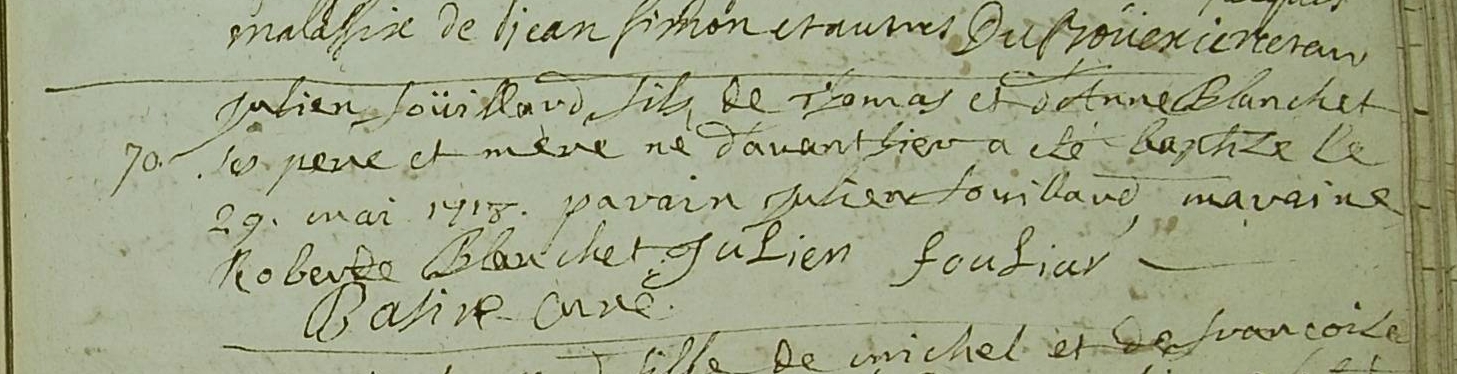 malassire de Jean Simon et autres Du
Julien Soüillard fils de Thomas et d'Anne Blanchet
70. ses pere et mère né d'avanthier a eté baptize le
29. mai 1718. parain Julien Souillard, maraine
Roberde Blanchet Julien souliar
Basire curé.
fille de michel et de francoise